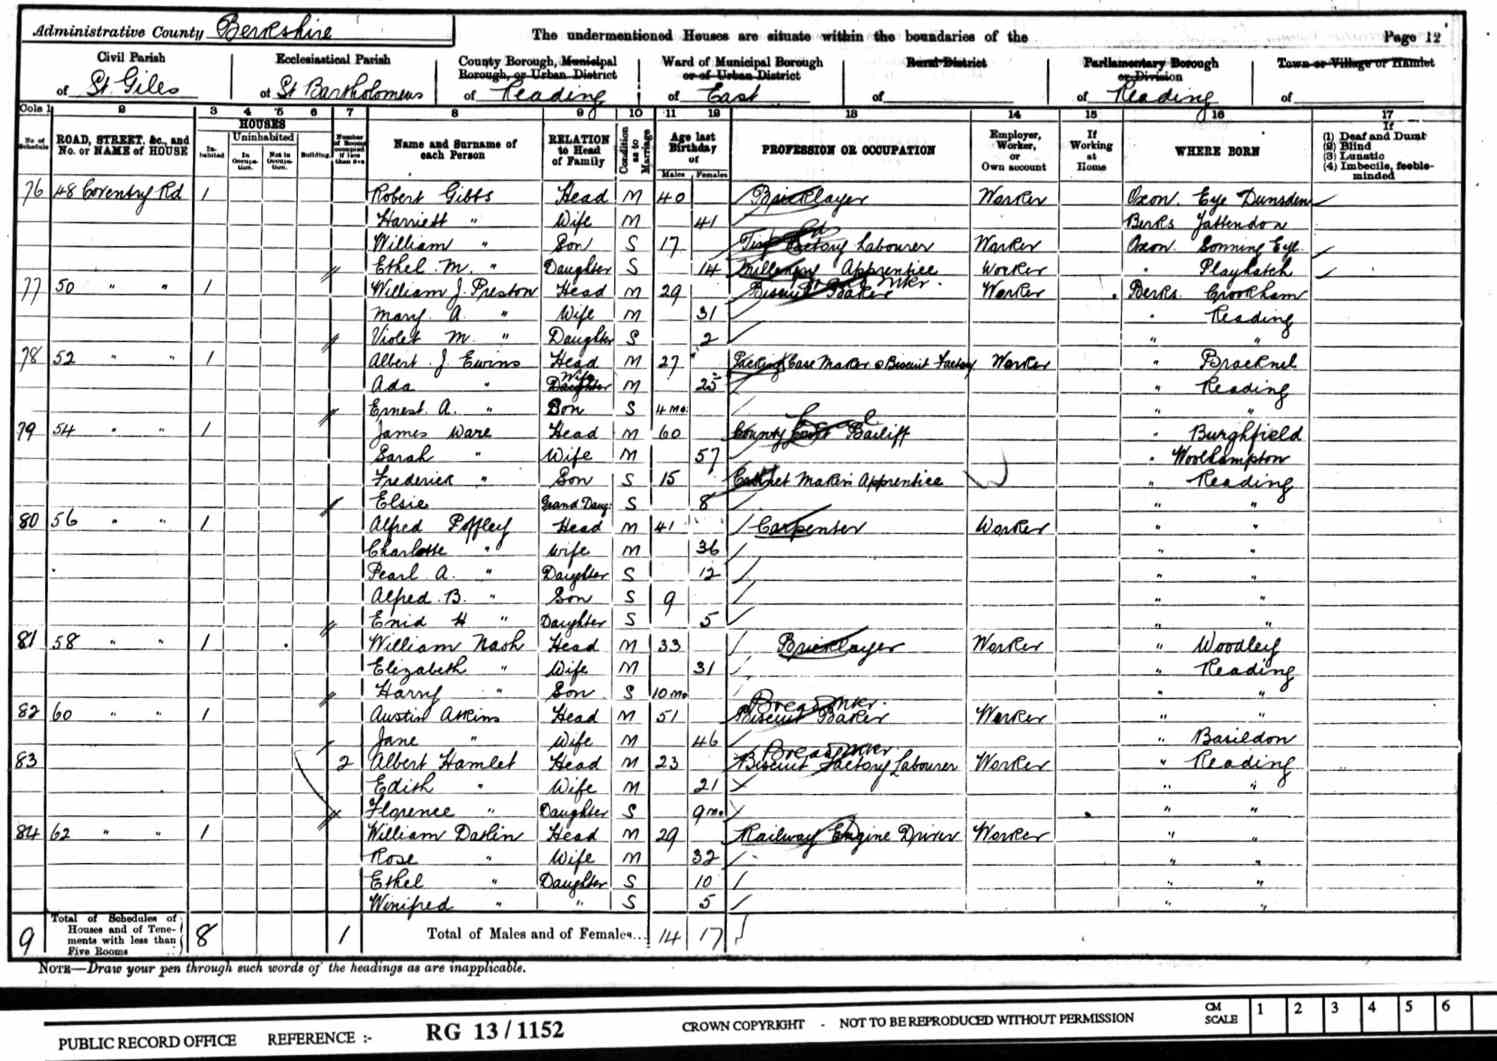 Administrative County Berkshire
The undermentioned Houses are situate within the boundaries of the
Page 12
Civil Parish of St Giles
Ecclesiastical Parish of St Bartholomews
County Borough, Municipal Borough, or Urban District of Reading
Ward of Municipal Borough or of Urban District of East
Rural District of
Parliamentary Borough or Division of Reading
Town or Village or Hamlet of
Cols 1 2 3 4 5 6 7 8 9 10 11 12 13 14 15 16 17
No. of Schedule
ROAD, STREET, &c., and No. or NAME of HOUSE
HOUSES
In-habited
Uninhabited
In Occupa-tion.
Not in Occupa-tion.
Building
Number of Rooms occupied if less than five
Name and Surname of each Person
RELATION to Head of Family
Condition as to Marriage
Age last Birthday of
Males Females
PROFESSION OR OCCUPATION
Employer, Worker, or Own account
If Working at Home
WHERE BORN
If
(1) Deaf and Dumb
(2) Blind
(3) Lunatic
(4) Imbecile, feeble-minded
76 48 Coventry Rd 1 Robert Gibbs Head M 40 Bricklayer Worker Oxon. Eye Dunsden
Harriett " Wife M 41 Berks Yattendon
William " Son S 17 Tin Factory Labourer Worker Oxon Sonning Eye
Ethel M. " Daughter S 14 Millinery Apprentice Worker " Playhatch
77 50 " " 1 William J. Preston Head M 29 Biscuit Baker Worker Berks. Crookham
Mary A. " Wife M 31 " Reading
Violet M. " Daughter S 2 " "
78 52 " " 1 Albert J Ewins Head M 27 Packing Case Maker Biscuit Factory Worker " Bracknel
Ada " Daughter Wife M 25 " Reading
Ernest A. " Son S 4 mo. " "
79 54 " " 1 James Ware Head M 60 County Court Bailiff " Burghfield
Sarah " Wife M 57 " Woolhampton
Frederick " Son S 15 Cabinet Makers Apprentice W " Reading
Elsie Grand Daug. S 8 " "
80 56 " " 1 Alfred Poffley Head M 41 Carpenter Worker " "
Charlotte " Wife M 36 " "
Pearl A. " Daughter S 12 " "
Alfred B. " Son S 9 " "
Enid H " Daughter S 5 " "
81 58 " " 1 William Nash Head M 33 Bricklayer Worker " Woodley
Elizabeth " Wife M 31 " Reading
Harry " Son S 10 mo " "
Bread Mkr.
82 60 " " 1 Austin Atkins Head M 51 Biscuit Baker Worker " "
Jane " Wife M 46 " Basildon
83 2 Albert Hamlet Head M 23 Biscuit Factory Labourer Worker " Reading
Edith " Wife M 21 " "
Florence " Daughter S 9 mo " "
84 62 " " 1 William Darlin Head M 29 Railway Engine Driver Worker " "
Rose " Wife M 32 " "
Ethel " Daughter S 10 " "
Winifred " " S 5 " "
9 Total of Schedules of Houses and of Tene-ments with less than Five Rooms 8 1 Total of Males and of Females... 14 17
NOTE—Draw your pen through such words of the headings as are inapplicable.
PUBLIC RECORD OFFICE REFERENCE :- RG 13/1152 CROWN COPYRIGHT - NOT TO BE REPRODUCED WITHOUT PERMISSION CM SCALE 1 2 3 4 5 6